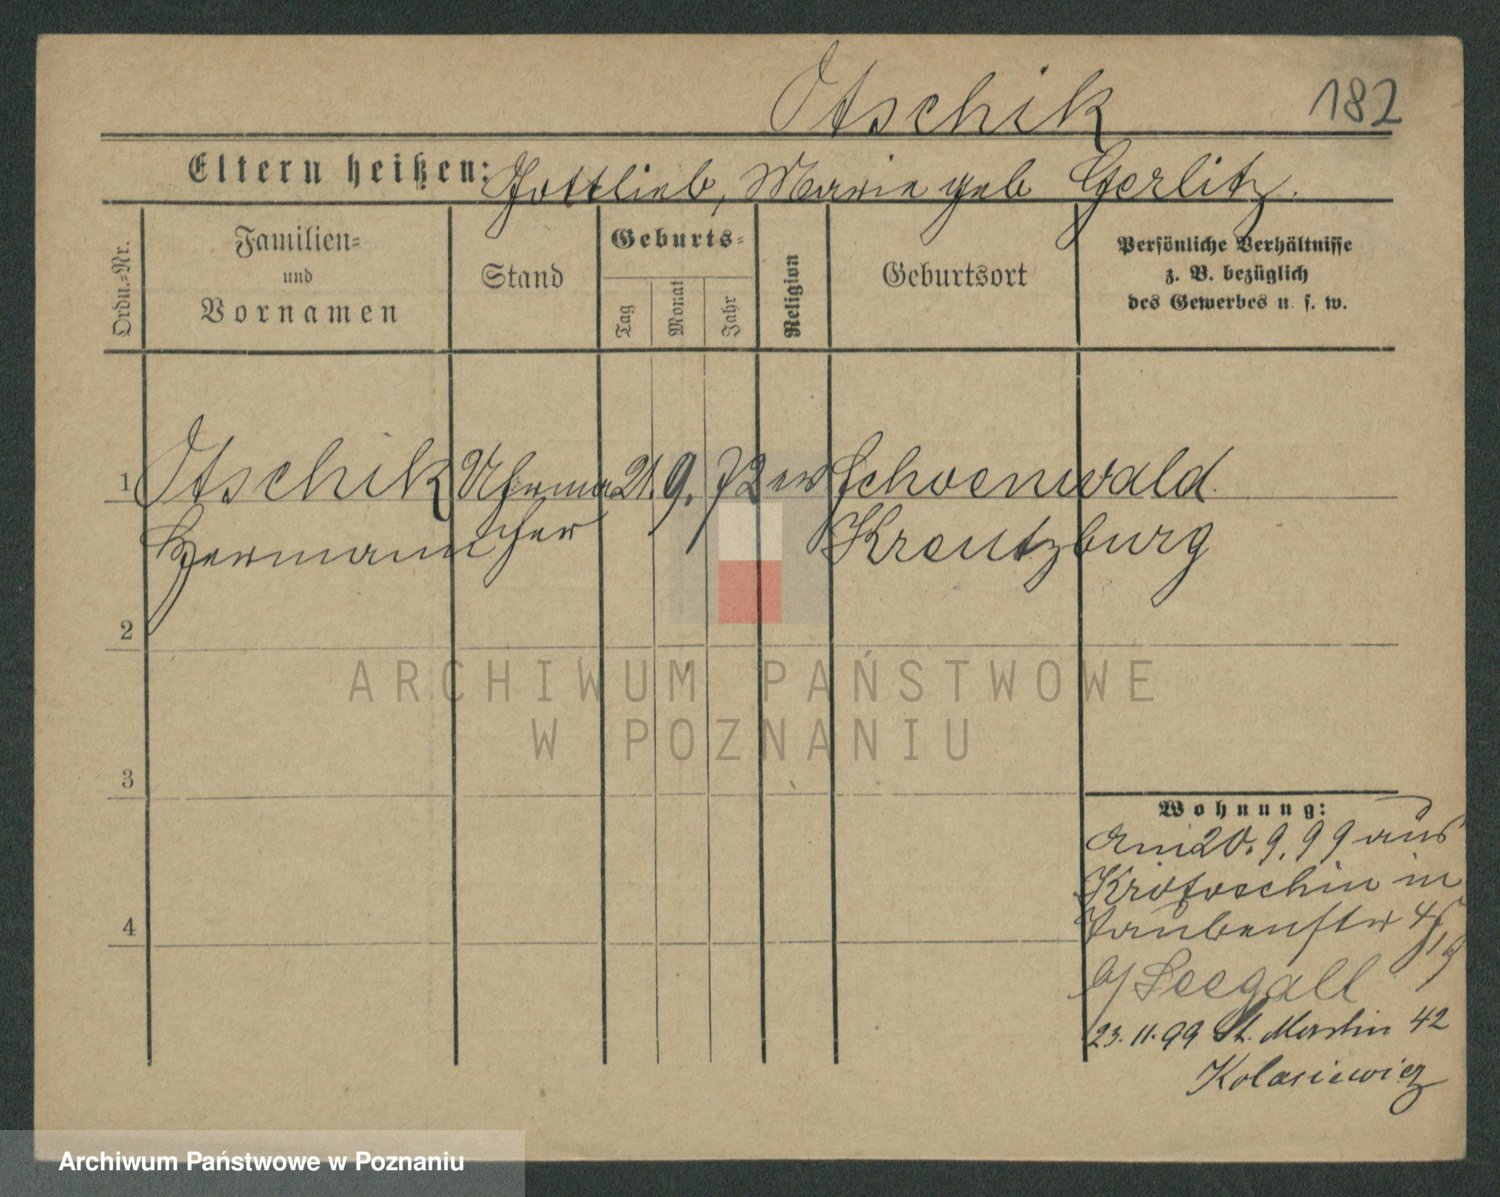 Otschik 182
Eltern heißen: Gottlieb, Marie geb Gerlitz.
Ordn.-Nr.
Familien-
und
Vornamen
Stand
Geburts-
Tag
Monat
Jahr
Religion
Geburtsort
Persönliche Verhältnisse
z. B. bezüglich
des Gewerbes u. s. w.
1 Otschik Uhrma 21. 9. 72 ev Schoenwald
Hermann cher Kreutzburg
2
ARCHIWUM PAŃSTWOWE
W POZNANIU
3
Wohnung:
Am 20. 9. 99 aus
Krotoschin in
Taubenstr
4
b/ Seegall
23. 11. 99 St. Martin 42
Kolasiewicz
Archiwum Państwowe w Poznaniu